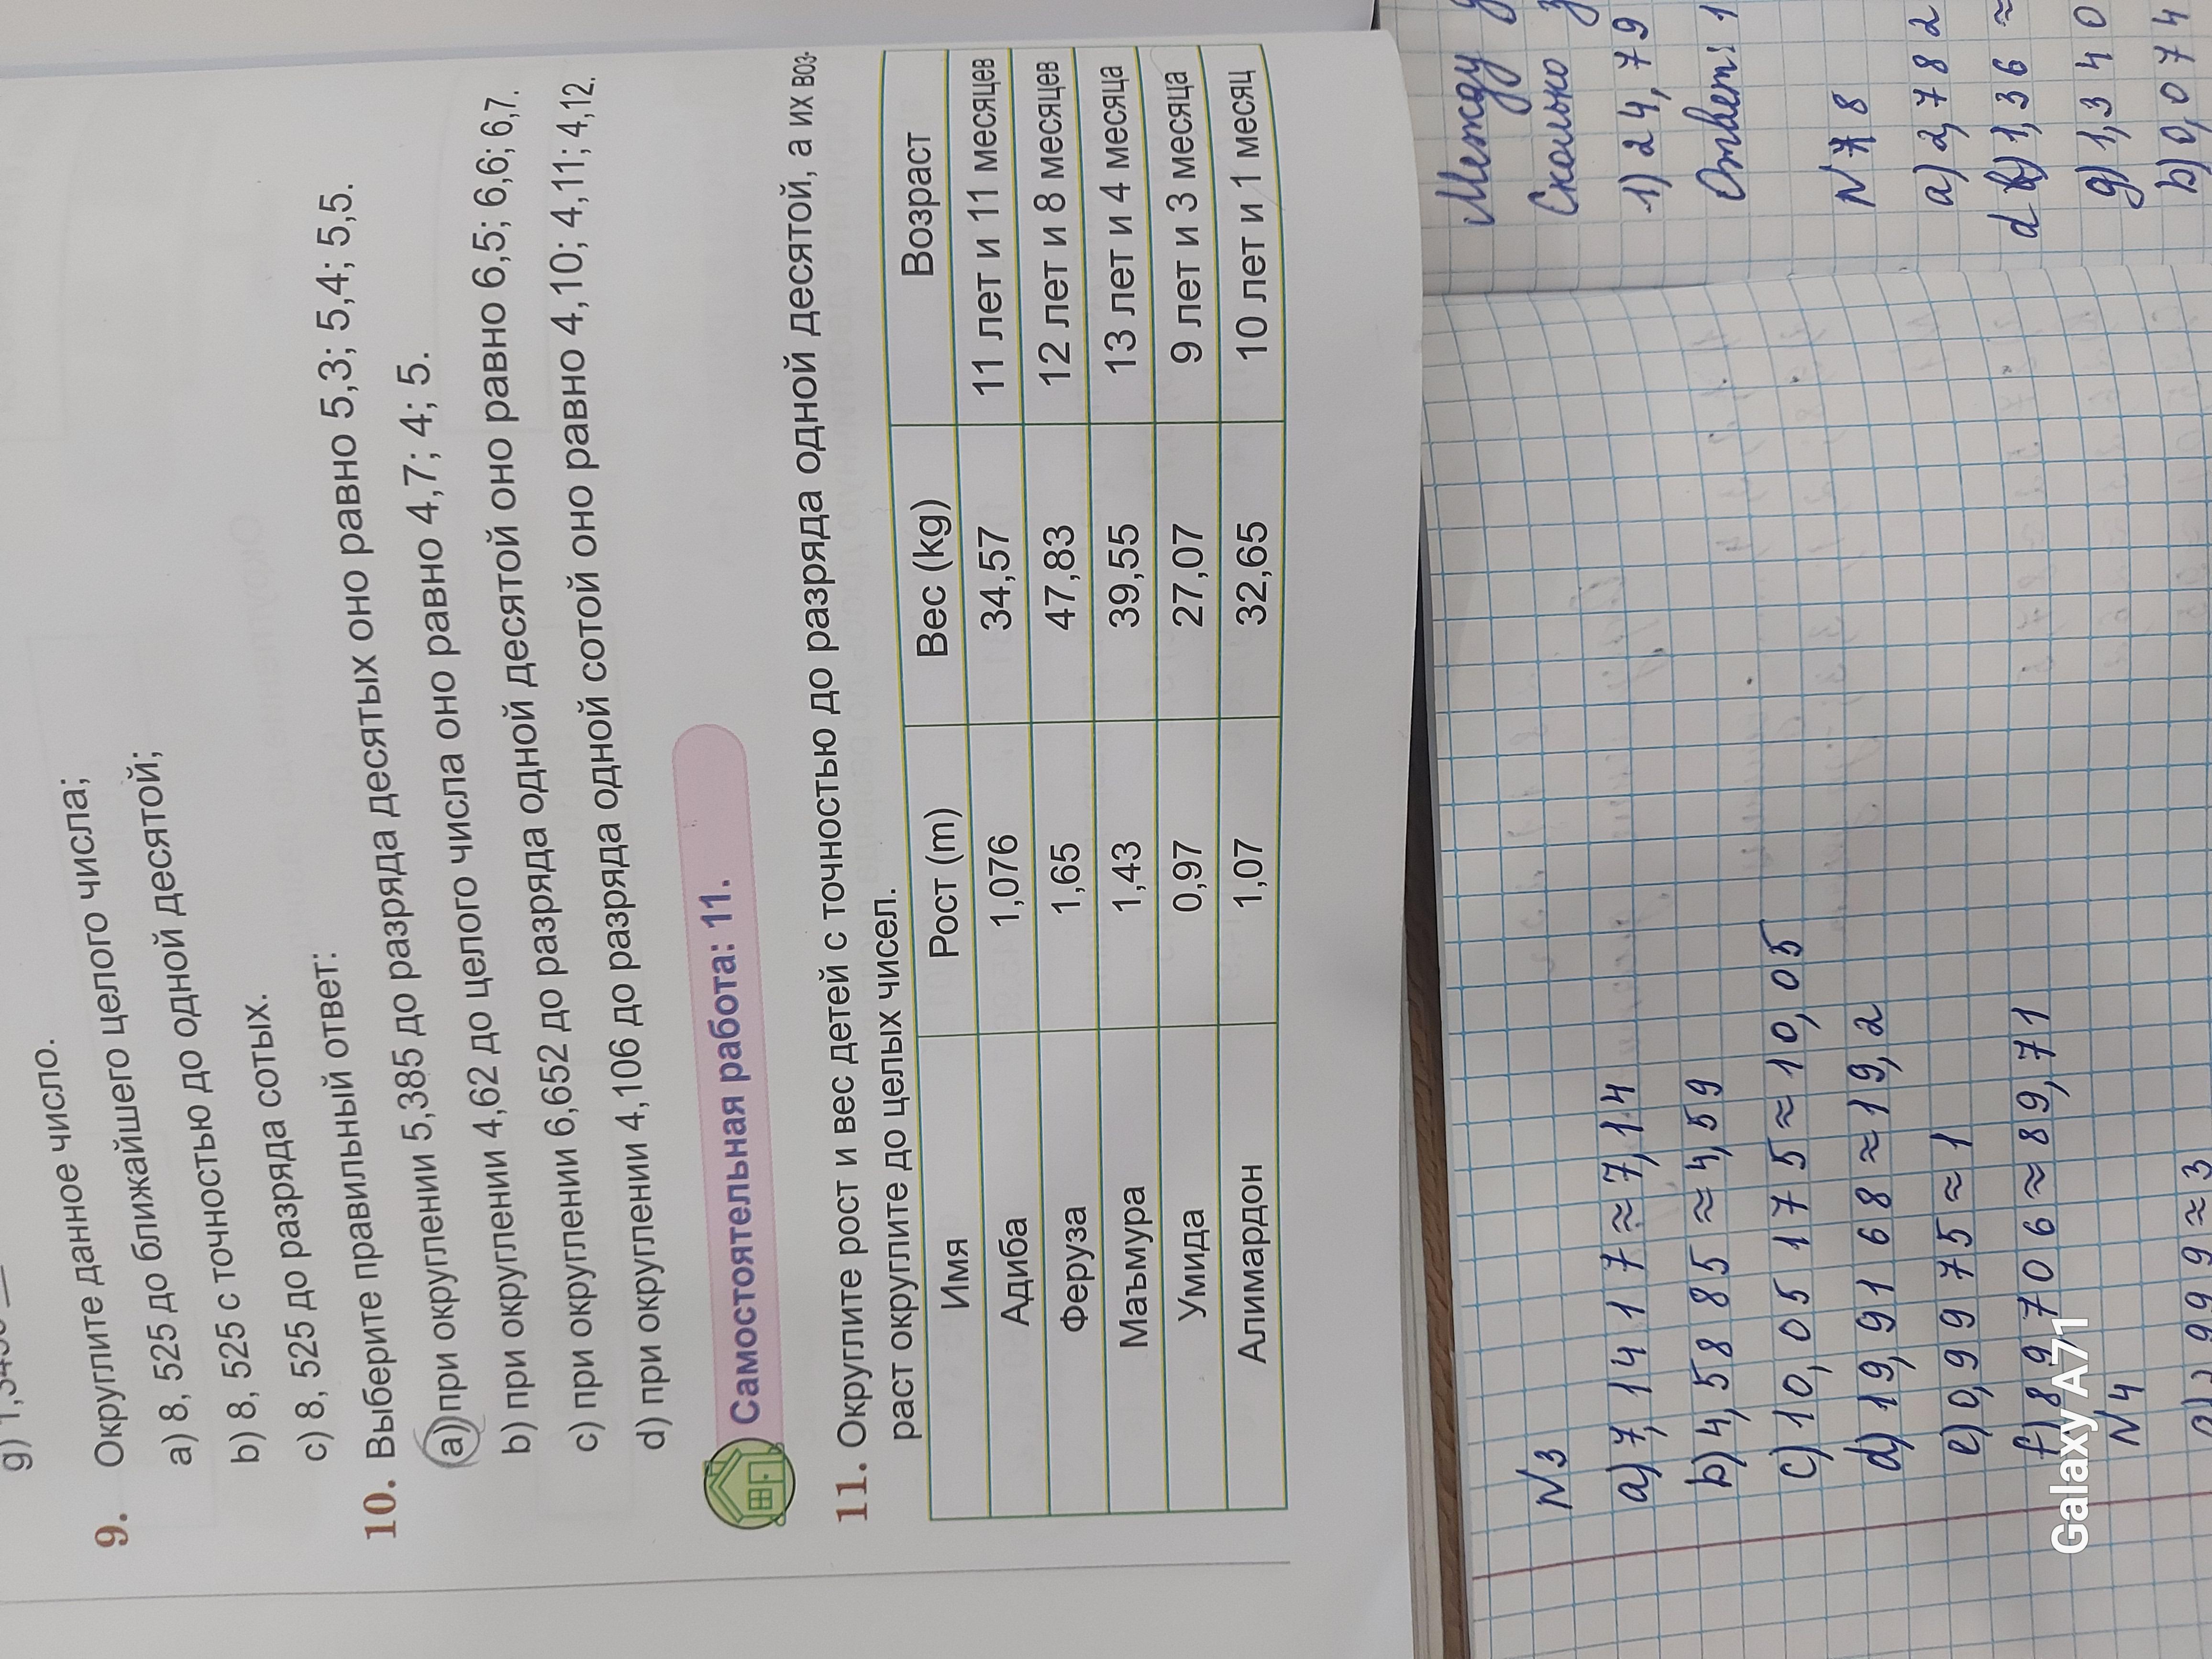 g) 1,
9. Округлите данное число.
a) 8, 525 до ближайшего целого числа;
b) 8, 525 с точностью до одной десятой;
c) 8, 525 до разряда сотых.
10. Выберите правильный ответ:
a) при округлении 5,385 до разряда десятых оно равно 5,3; 5,4; 5,5.
b) при округлении 4,62 до целого числа оно равно 4,7; 4; 5.
c) при округлении 6,652 до разряда одной десятой оно равно 6,5; 6,6; 6,7.
d) при округлении 4,106 до разряда одной сотой оно равно 4,10; 4,11; 4,12.
Самостоятельная работа: 11.
11. Округлите рост и вес детей с точностью до разряда одной десятой, а их воз-
раст округлите до целых чисел.
Имя Рост (m) Вес (kg) Возраст
Адиба 1,076 34,57 11 лет и 11 месяцев
Феруза 1,65 47,83 12 лет и 8 месяцев
Маъмура 1,43 39,55 13 лет и 4 месяца
Умида 0,97 27,07 9 лет и 3 месяца
Алимардон 1,07 32,65 10 лет и 1 месяц
N3
a) 7,1417≈7,14
b) 4,5885≈4,59
c) 10,05175≈10,05
d) 19,9168≈19,2
e) 0,9975≈1
f) 89,706≈89,71
N4
a) 2,999≈3
Между
Сколько
1) 24,79
Ответ: 1
N 8
a) 2,782
d) 1,36≈
g) 1,340
b) 0,074
Galaxy A71